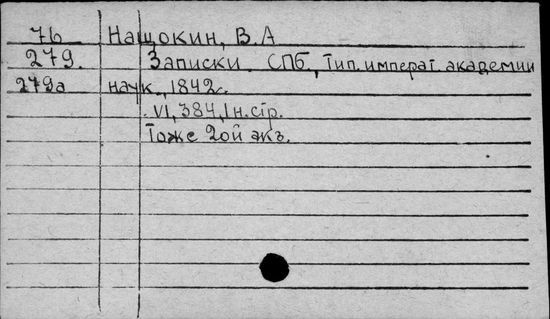 76 Нащокин, В.А
279. Записки СПб., Тип. императ. академии
279а наук, 1842г.
VI, 384, I н.стр.
Тоже 2ой экъ.